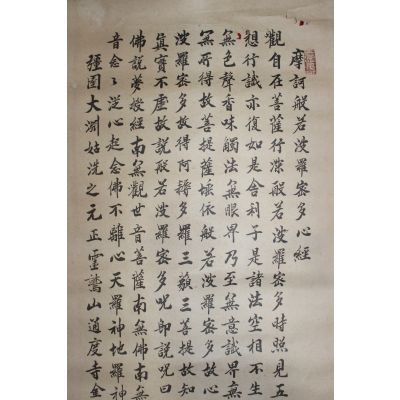 摩訶般若波羅蜜多心經
觀自在菩薩行深般若波羅蜜多時照見五
想行識亦復如是舍利子是諸法空相不生
無色聲香味觸法無眼界乃至無意識界無
無所得故菩提薩埵依般若波羅蜜多故心
波羅蜜多故得阿耨多羅三藐三菩提故知
真實不虛故說般若波羅蜜多呪即說呪曰
佛說夢授經南無觀世音菩薩南無佛南無
音念〻從心起念佛不離心天羅神地羅神
彊圉大淵姑洗之元正靈鷲山道度寺金